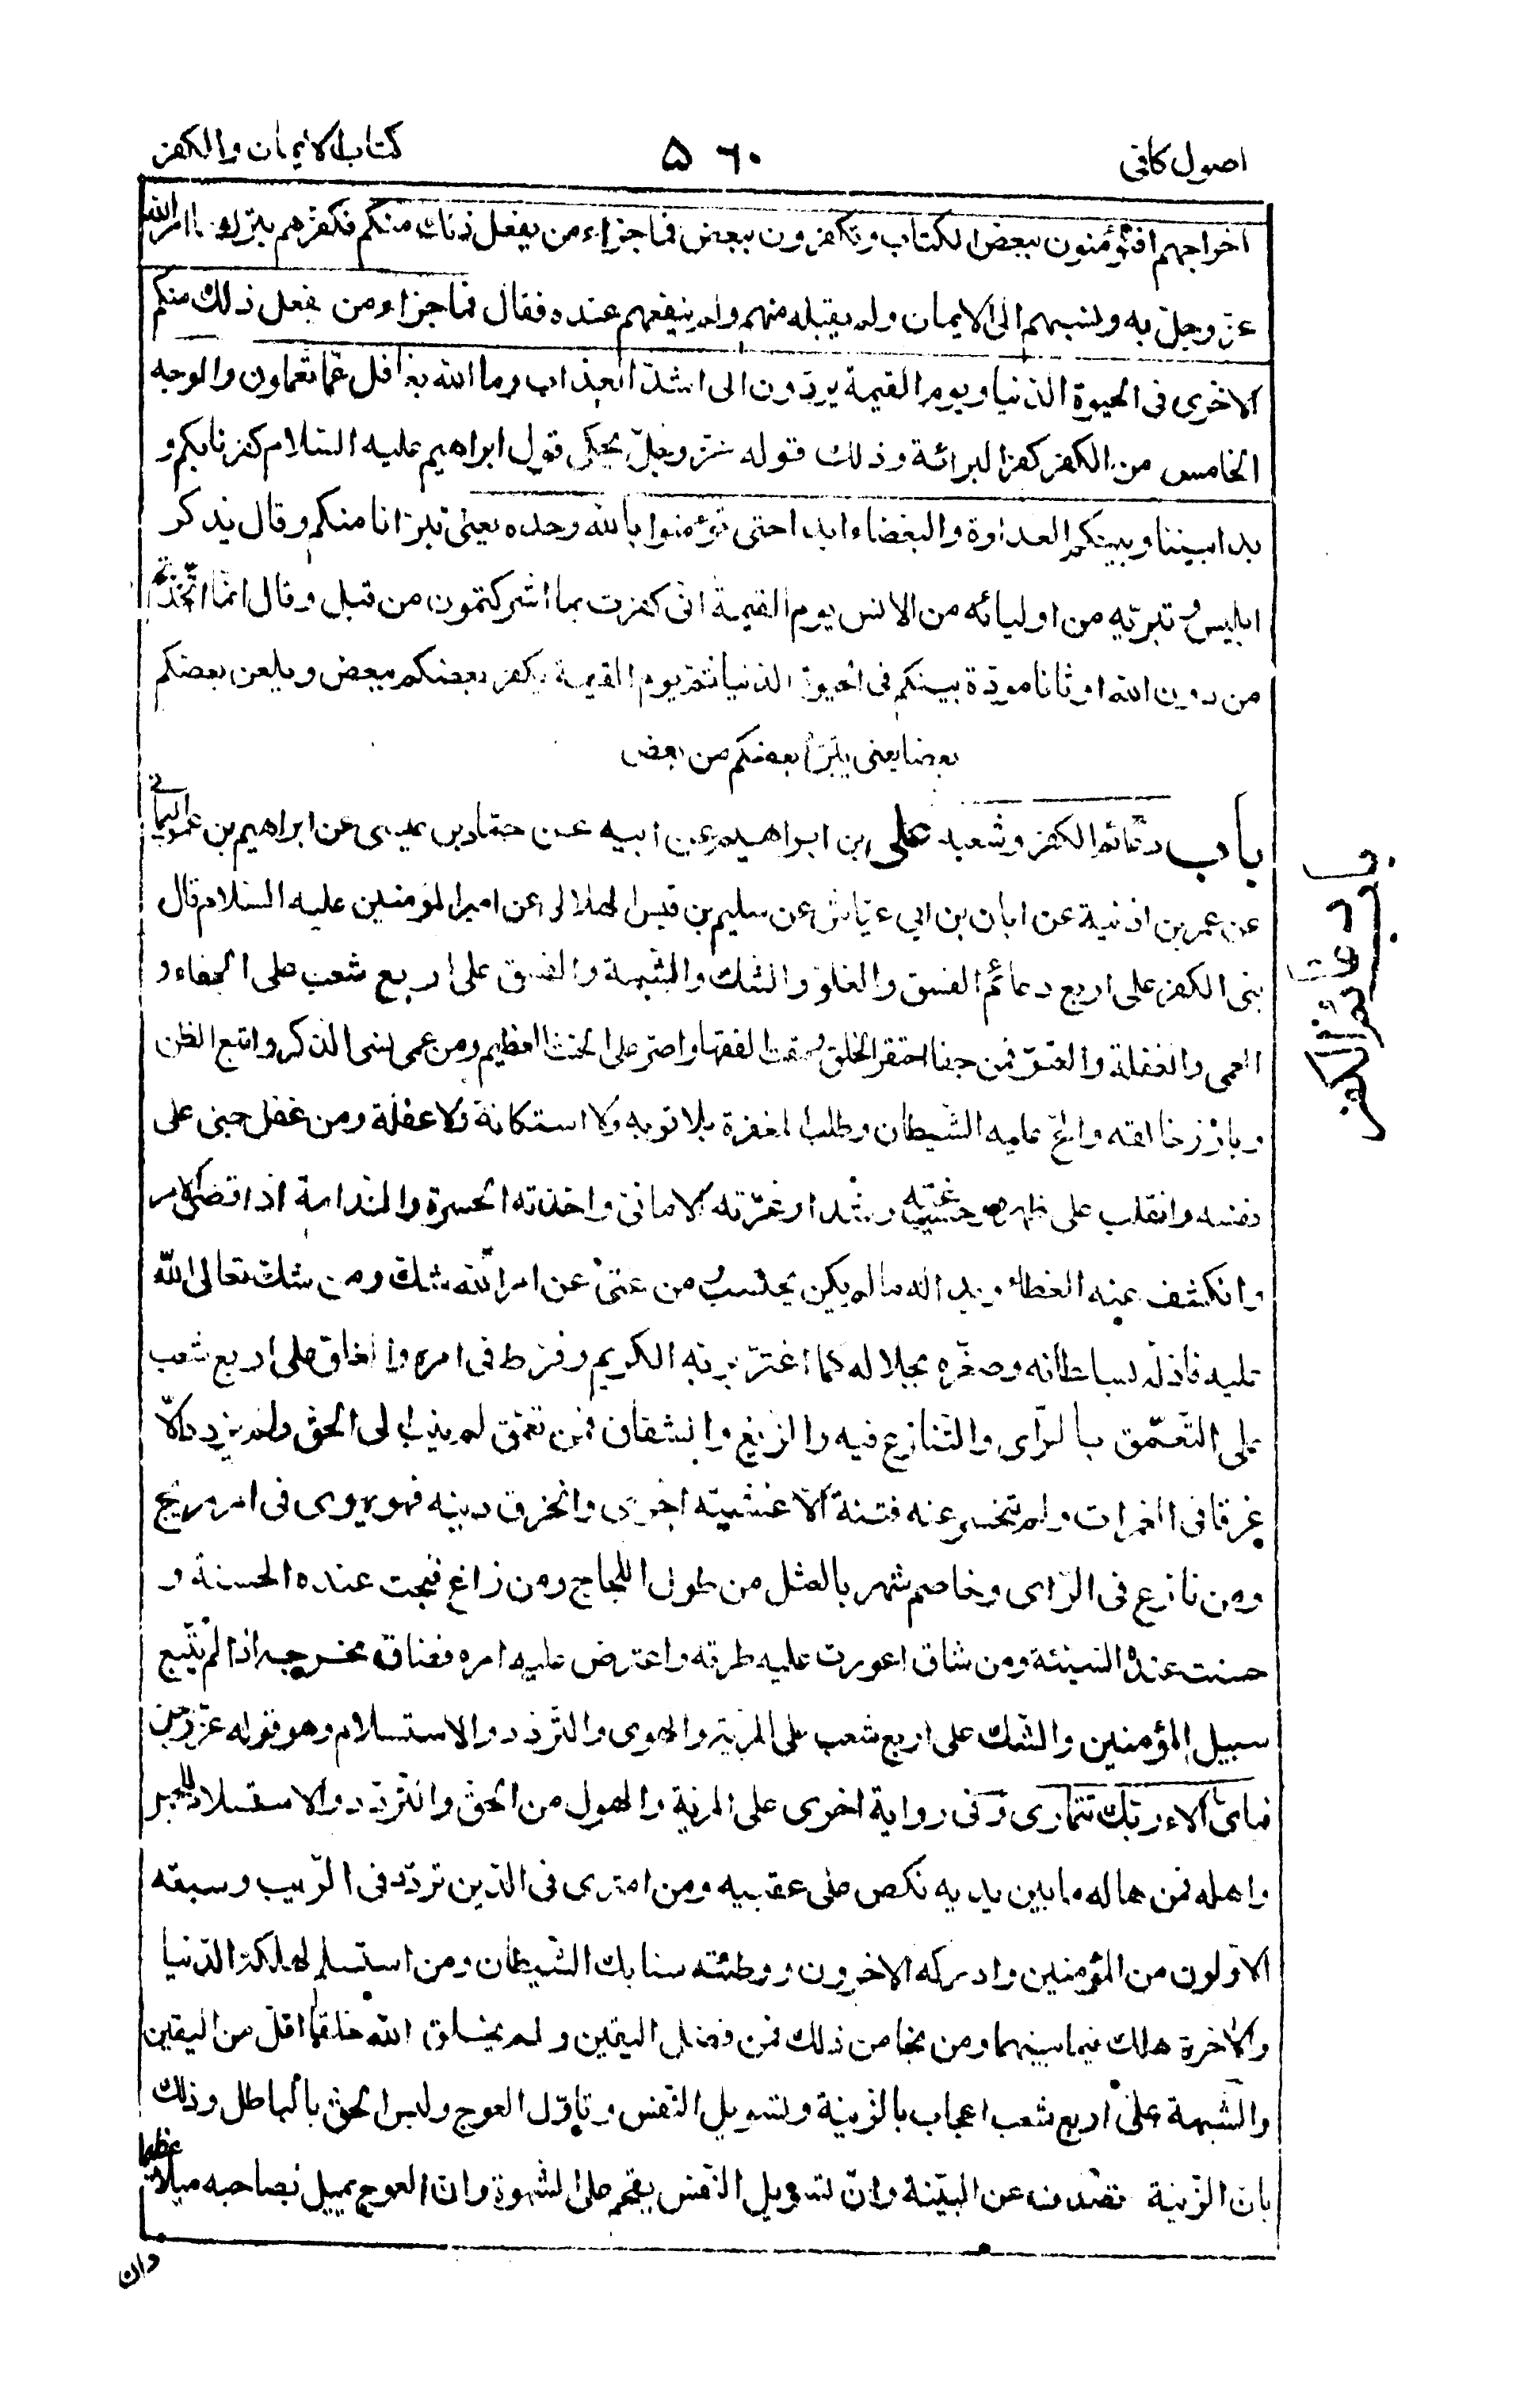 اصول كافى ٥٦٠ كتاب الايمان والكفر
اخراجهم افتؤمنون ببعض الكتاب وتكفرون ببعض فما جزاء من يفعل ذلك منكم فكفرهم بترك ما امر الله
عزّ وجلّ به ونسبهم الى الايمان ولم يقبله منهم ولم ينفعهم عنده فقال فما جزاء من يفعل ذلك منكم
الاخزى فى الحيوة الدّنيا ويوم القيمة يردّون الى اشدّ العذاب وما الله بغافل عمّا تعملون والوجه
الخامس من الكفر كفر البرائة وذلك قوله عزّ وجلّ يحكى قول ابراهيم عليه السّلام كفرنا بكم و
بدا بيننا وبينكم العداوة والبغضاء ابدا حتى تؤمنوا بالله وحده يعنى تبرّانا منكم وقال يذكر
ابليس و تبرئيه من اوليائه من الانس يوم القيمة انّى كفرت بما اشركتمون من قبل وقال انّما اتّخذتم
من دون الله اوثانا مودّة بينكم فى الحيوة الدّنيا ثمّ يوم القيمة يكفر بعضكم ببعض ويلعن بعضكم
بعضا يعنى يتبرّأ بعضكم من بعض
باب دعائم الكفر وشعبه على بن ابراهيم عن ابيه عن حمّاد بن عيسى عن ابراهيم بن عمر اليمانى
عن عمر بن اذينة عن ابان بن ابى عيّاش عن سليم بن قيس الهلالى عن امير المؤمنين عليه السّلام قال
بنى الكفر على اربع دعائم الفسق والغلوّ والشّك والشّبهة والفسق على اربع شعب على الجفاء و
العمى والغفلة والعتوّ فمن جفا احتقر الخلق ومقت الفقهاء واصرّ على الحنث العظيم ومن عمى نسى الذّكر واتبع الظن
وبارز خالقه والحّ عليه الشّيطان وطلب المغفرة بلا توبه ولا استكانة ولا غفلة ومن غفل جنى على
نفسه وانقلب على ظهره وحسب غيّه رشدا وغرّته الامانىّ واخذته الحسرة والنّدامة اذا قضى الامر
وانكشف عنه الغطاء وبدا له ما لم يكن يحتسب و من عتى عن امر الله شك ومن شك تعالى الله
عليه فاذلّه بسلطانه وصغّره بجلاله كما اغترّ بربّه الكريم وفرّط فى امره والغلوّ على اربع شعب
على التّعمّق بالرّاى والتّنازع فيه والزّيغ والشقاق فمن تعمّق لم ينب الى الحقّ ولم يزدد الّا
غرقا فى الغمرات ولم تنحسر عنه فتنة الّا غشيته اخرى وانخرق دينه فهو يهوى فى امر مريج
ومن نازع فى الرّاى وخاصم شهر بالعثل من طول اللّجاج ومن زاغ قبحت عنده الحسنة و
حسنت عنده السّيئة ومن شاق اعورت عليه طرقه واعترض عليه امره فضاق مخرجه اذا لم يتّبع
سبيل المؤمنين والشّك على اربع شعب على المرية والهوى والتّردّد والاستسلام وهو قوله عزّ وجلّ
فباىّ الاء ربّك تتمارى وفى رواية اخرى على المرية والهول من الحقّ والتّردّد والاستسلام للجهل
واهله فمن هاله ما بين يديه نكص على عقبيه ومن امترى فى الدّين تردّد فى الرّيب وسبقه
الاوّلون من المؤمنين وادركه الاخرون ووطئته سنابك الشّيطان ومن استسلم لهلكة الدّنيا
والاخرة هلك فيما بينهما ومن نجا من ذلك فمن فضل اليقين ولم يخلق الله خلقا اقلّ من اليقين
والشّبهة على اربع شعب اعجاب بالزّينة وتسويل النّفس وتاوّل العوج ولبس الحقّ بالباطل وذلك
بان الزّينة تصدف عن البيّنة وانّ تسويل النّفس يقحم على الشّهوة وان العوج يميل بصاحبه ميلا عظيما
وان
باب دعائم الكفر